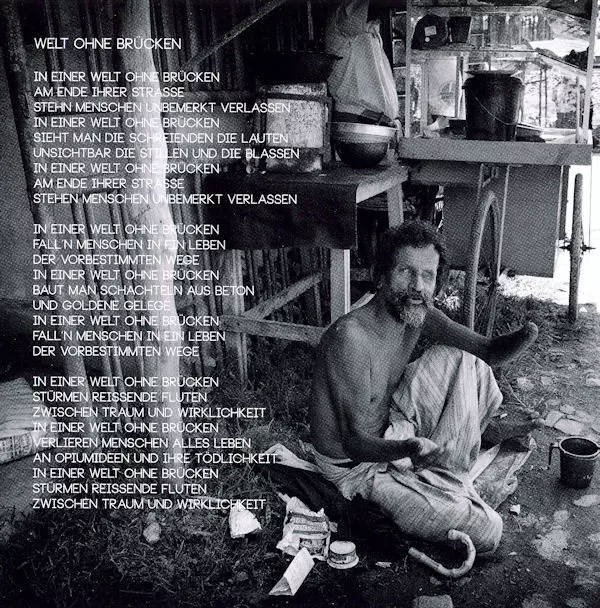 WELT OHNE BRÜCKEN
IN EINER WELT OHNE BRÜCKEN
AM ENDE IHRER STRASSE
STEHN MENSCHEN UNBEMERKT VERLASSEN
IN EINER WELT OHNE BRÜCKEN
SIEHT MAN DIE SCHREIENDEN DIE LAUTEN
UNSICHTBAR DIE STILLEN UND DIE BLASSEN
IN EINER WELT OHNE BRÜCKEN
AM ENDE IHRER STRASSE
STEHEN MENSCHEN UNBEMERKT VERLASSEN
IN EINER WELT OHNE BRÜCKEN
FALL'N MENSCHEN IN EIN LEBEN
DER VORBESTIMMTEN WEGE
IN EINER WELT OHNE BRÜCKEN
BAUT MAN SCHACHTELN AUS BETON
UND GOLDENE GELEGE
IN EINER WELT OHNE BRÜCKEN
FALL'N MENSCHEN IN EIN LEBEN
DER VORBESTIMMTEN WEGE
IN EINER WELT OHNE BRÜCKEN
STÜRMEN REISSENDE FLUTEN
ZWISCHEN TRAUM UND WIRKLICHKEIT
IN EINER WELT OHNE BRÜCKEN
VERLIEREN MENSCHEN ALLES LEBEN
AN OPIUMIDEEN UND IHRE TÖDLICHKEIT
IN EINER WELT OHNE BRÜCKEN
STÜRMEN REISSENDE FLUTEN
ZWISCHEN TRAUM UND WIRKLICHKEIT